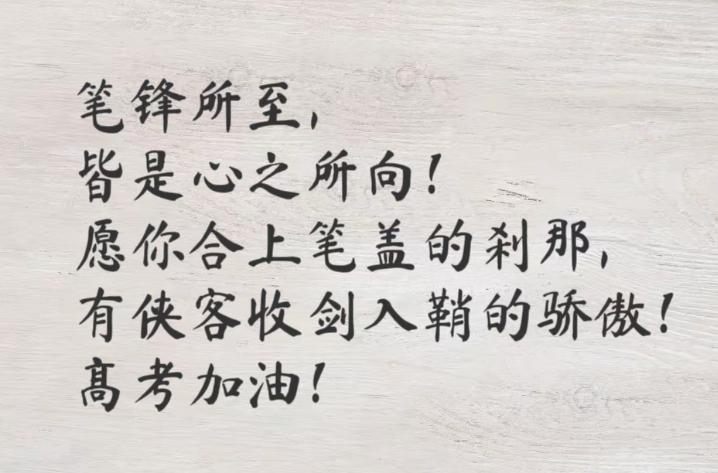 笔锋所至,
皆是心之所向!
愿你合上笔盖的刹那,
有侠客收剑入鞘的骄傲!
高考加油!